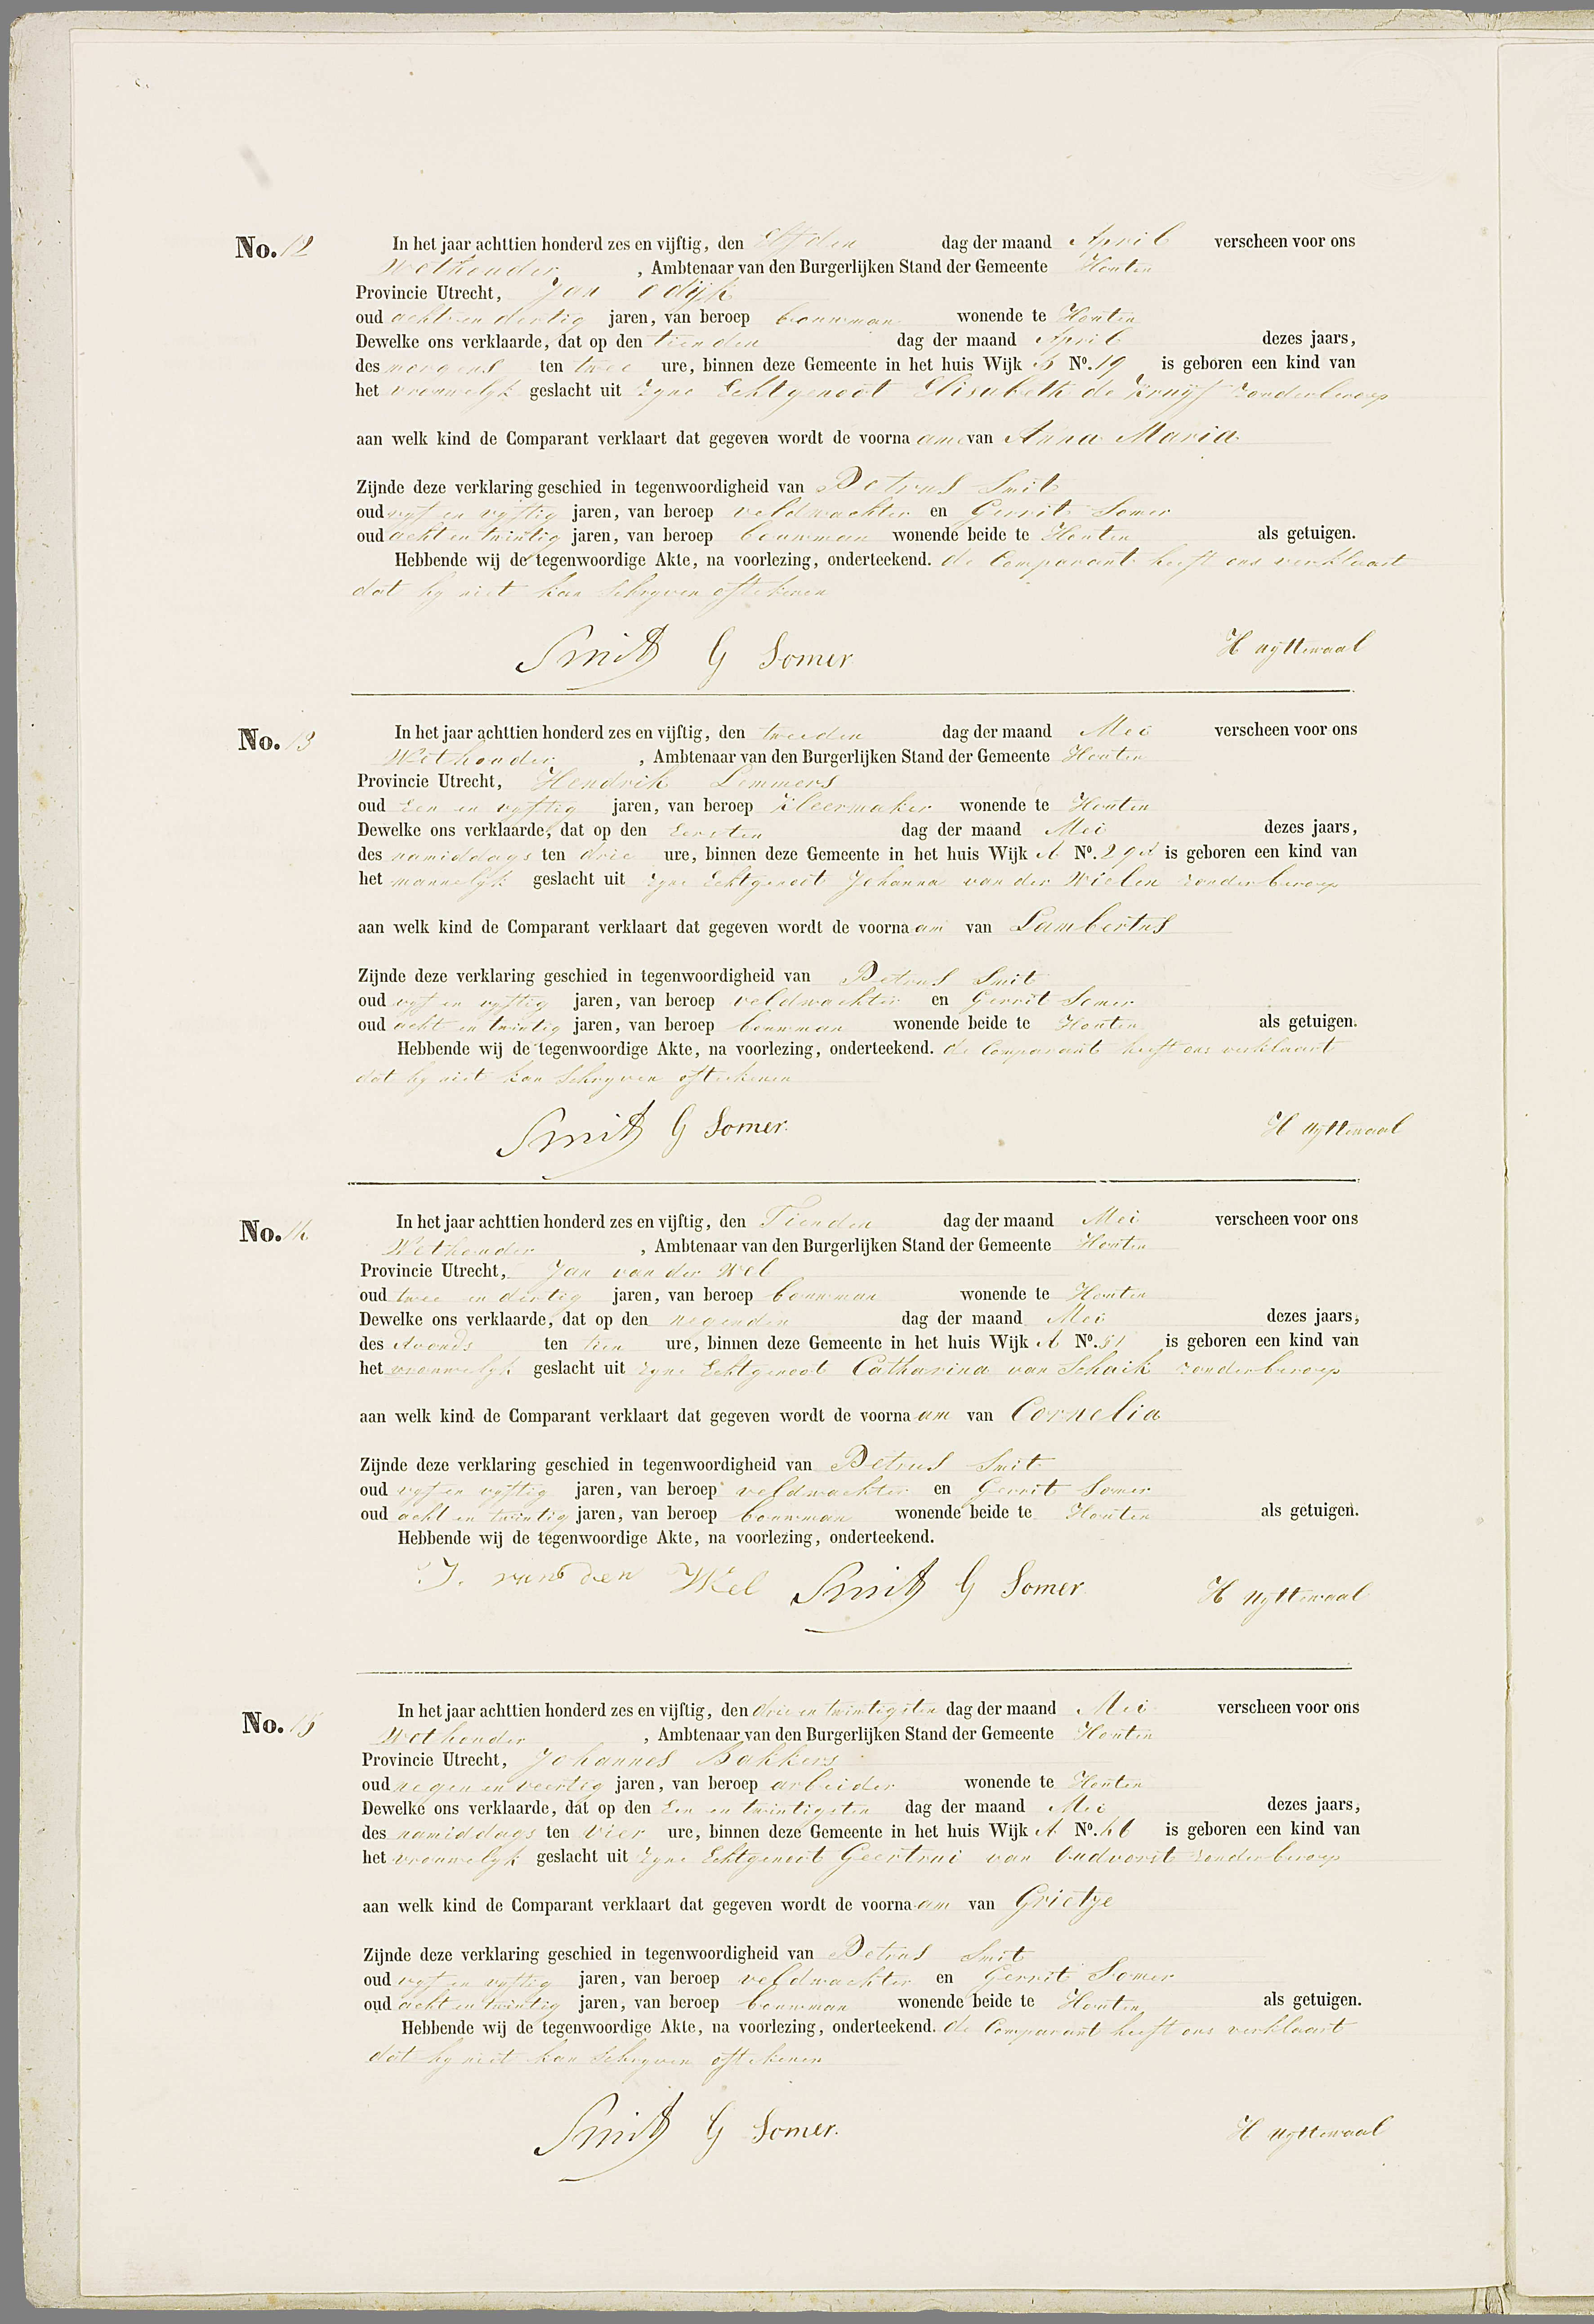 No. 12 In het jaar achttien honderd zes en vijftig, den Elfden dag der maand April verscheen voor ons
Wethouder, Ambtenaar van den Burgerlijken Stand der Gemeente Houten
Provincie Utrecht, Jan Odijk
oud acht en dertig jaren, van beroep bouwman wonende te Houten
Dewelke ons verklaarde, dat op den tienden dag der maand April dezes jaars,
des morgens ten twee ure, binnen deze Gemeente in het huis Wijk No. 19 is geboren een kind van
het vrouwelyk geslacht uit zyne Echtgenoot Elisabeth de Kruijf zonder beroep
aan welk kind de Comparant verklaart dat gegeven wordt de voornaam van Anna Maria
Zijnde deze verklaring geschied in tegenwoordigheid van Petrus Smit
oud vyf en vyftig jaren, van beroep veldwachter en Gerrit Somer
oud acht en twintig jaren, van beroep bouwman wonende beide te Houten als getuigen.
Hebbende wij de tegenwoordige Akte, na voorlezing, onderteekend. de Comparant heeft ons verklaart
dat hy niet kan Schryven of tekenen
Smit G Somer H Uyttewaal
No. 13 In het jaar achttien honderd zes en vijftig, den tweeden dag der maand Mei verscheen voor ons
Wethouder, Ambtenaar van den Burgerlijken Stand der Gemeente Houten
Provincie Utrecht, Hendrik Lemmers
oud Een en vyftig jaren, van beroep Kleermaker wonende te Houten
Dewelke ons verklaarde, dat op den Eersten dag der maand Mei dezes jaars,
des namiddags ten drie ure, binnen deze Gemeente in het huis Wijk A No. 29 is geboren een kind van
het mannelyk geslacht uit zyne Echtgenoot Johanna van der Wielen zonder beroep
aan welk kind de Comparant verklaart dat gegeven wordt de voornaam van Lambertus
Zijnde deze verklaring geschied in tegenwoordigheid van Petrus Smit
oud vyf en vyftig jaren, van beroep veldwachter en Gerrit Somer
oud acht en twintig jaren, van beroep bouwman wonende beide te Houten als getuigen.
Hebbende wij de tegenwoordige Akte, na voorlezing, onderteekend. de Comparant heeft ons verklaart
dat hy niet kan Schryven of tekenen
Smit G Somer. H Uyttewaal
No. 14 In het jaar achttien honderd zes en vijftig, den Tienden dag der maand Mei verscheen voor ons
Wethouder, Ambtenaar van den Burgerlijken Stand der Gemeente Houten
Provincie Utrecht, Jan van der Wel
oud twee en dertig jaren, van beroep bouwman wonende te Houten
Dewelke ons verklaarde, dat op den negenden dag der maand Mei dezes jaars,
des Avonds ten tien ure, binnen deze Gemeente in het huis Wijk A No. 51 is geboren een kind van
het vrouwelyk geslacht uit zyne Echtgenoot Catharina van Schaik zonder beroep
aan welk kind de Comparant verklaart dat gegeven wordt de voornaam van Cornelia
Zijnde deze verklaring geschied in tegenwoordigheid van Petrus Smit
oud vyf en vyftig jaren, van beroep veldwachter en Gerrit Somer
oud acht en twintig jaren, van beroep bouwman wonende beide te Houten als getuigen.
Hebbende wij de tegenwoordige Akte, na voorlezing, onderteekend.
J. van den Wel Smit G Somer H Uyttewaal
No. 15 In het jaar achttien honderd zes en vijftig, den drie en twintigsten dag der maand Mei verscheen voor ons
Wethouder, Ambtenaar van den Burgerlijken Stand der Gemeente Houten
Provincie Utrecht, Johannes Bakkers
oud negen en veertig jaren, van beroep arbeider wonende te Houten
Dewelke ons verklaarde, dat op den Een en twintigsten dag der maand Mei dezes jaars,
des namiddags ten vier ure, binnen deze Gemeente in het huis Wijk A No. 46 is geboren een kind van
het vrouwelyk geslacht uit zyne Echtgenoot Geertrui van Oudvorst zonder beroep
aan welk kind de Comparant verklaart dat gegeven wordt de voornaam van Grietje
Zijnde deze verklaring geschied in tegenwoordigheid van Petrus Smit
oud vyf en vyftig jaren, van beroep veldwachter en Gerrit Somer
oud acht en twintig jaren, van beroep bouwman wonende beide te Houten als getuigen.
Hebbende wij de tegenwoordige Akte, na voorlezing, onderteekend. de Comparant heeft ons verklaart
dat hy niet kan Schryven of tekenen
Smit G Somer. H Uyttewaal